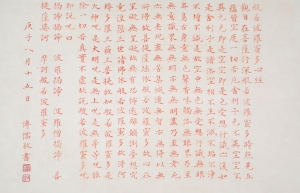 般若波羅蜜多心經
觀自在菩薩行深般若波羅蜜多時照見五
蘊皆空度一切苦厄舍利子色不異空空不
異色色即是空空即是色受想行識亦復如
是舍利子是諸法空相不生不滅不垢不淨
不增不減是故空中無色無受想行識無眼
耳鼻舌身意無色聲香味觸法無眼界乃至
無意識界無無明亦無無明盡乃至無老死
亦無老死盡無苦集滅道無智亦無得以無
所得故菩提薩埵依般若波羅蜜多故心無
罣礙無罣礙故無有恐怖遠離顛倒夢想究
竟涅槃三世諸佛依般若波羅蜜多故得阿
耨多羅三藐三菩提故知般若波羅蜜多是
大神咒是大明咒是無上咒是無等等咒能
除一切苦真實不虛故說般若波羅蜜多咒
即說咒曰
揭諦揭諦 波羅揭諦 波羅僧揭諦 菩
提薩婆訶 摩訶般若波羅蜜多
庚子八月十五日 溥儒敬書